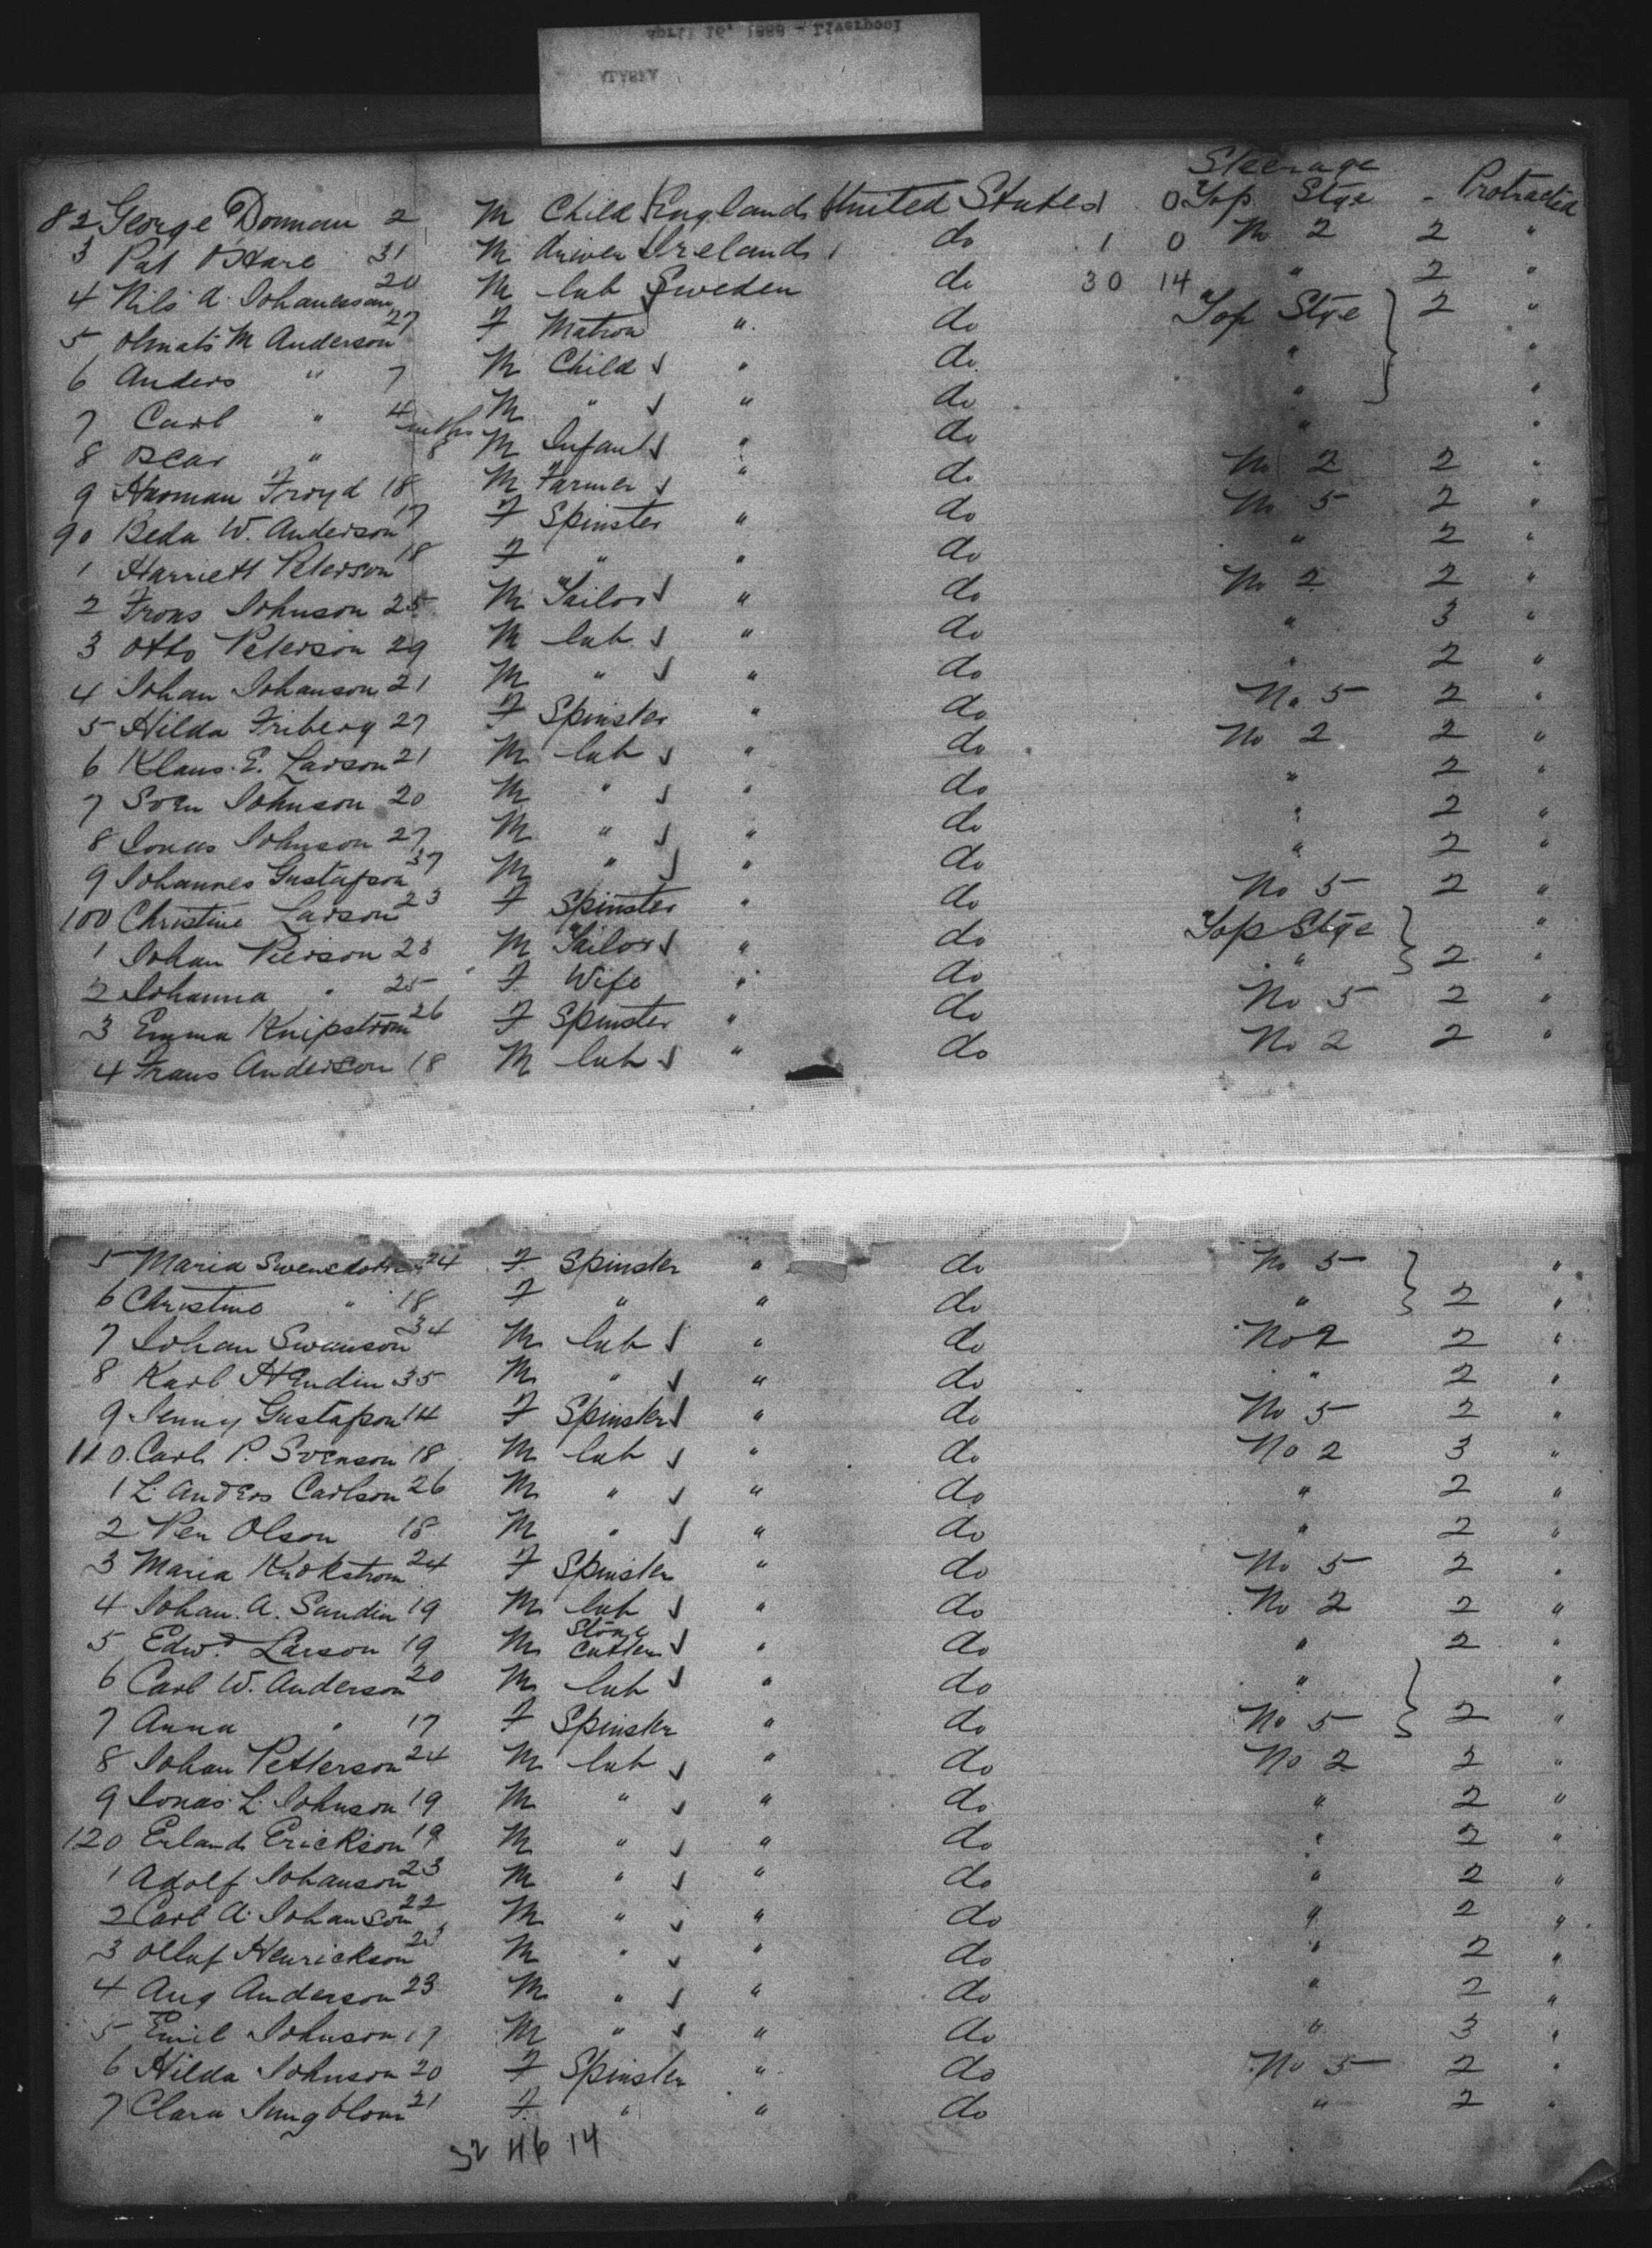 April 16, 1888 - Liverpool
ALASKA
Steerage
82 George Donnan 2 M Child England United States 1 0 Top Stge - Protracted
3 Pat O'Hare 31 M Driver Ireland 1 do 1 0 No 2 2 "
4 Nils A. Johanesson 20 M lab Sweden do 30 14 " 2 "
5 M Anderson 27 F Matron " do Top Stge 2 "
6 Anders " 7 M Child " do " "
7 Carl " 4 M " " do " "
8 Oscar " 8 mths M Infant " do " "
9 Herman Froyd 18 M Farmer " do No 2 2 "
90 Beda W. Anderson 17 F Spinster " do No 5 2 "
1 Harriett Peterson 18 F " " do " 2 "
2 Frans Johnson 25 M Tailor " do No 2 2 "
3 Otto Peterson 29 M lab " do " 3 "
4 Johan Johanson 21 M " " do " 2 "
5 Hilda Friberg 27 F Spinster " do No 5 2 "
6 Klaus. E. Larson 21 M lab " do No 2 2 "
7 Sven Johnson 20 M " " do " 2 "
8 Jonas Johnson 27 M " " do " 2 "
9 Johannes Gustafson 37 M " " do " 2 "
100 Christine Larson 23 F Spinster " do No 5 2 "
1 Johan Pierson 28 M Tailor " do Top Stge "
2 Johanna " 25 F Wife " do " 2 "
3 Emma Knipström 26 F Spinster " do No 5 2 "
4 Frans Anderson 18 M lab " do No 2 2 "
5 Maria Swensdotter 24 F Spinster " do No 5 "
6 Christine " 18 F " " do " 2 "
7 Johan Swanson 34 M lab " do No 2 2 "
8 Karl Hendin 35 M " " do " 2 "
9 Jenny Gustafson 14 F Spinster " do No 5 2 "
110 Carl P. Svenson 18 M lab " do No 2 3 "
1 L. Anders Carlson 26 M " " do " 2 "
2 Per Olson 18 M " " do " 2 "
3 Maria 24 F Spinster " do No 5 2 "
4 Johan. A. Sandin 19 M lab " do No 2 2 "
5 Edwd Larson 19 M Stone Cutter " do " 2 "
6 Carl W. Anderson 20 M lab " do " "
7 Anna " 17 F Spinster " do No 5 2 "
8 Johan Petterson 24 M lab " do No 2 2 "
9 Jonas L. Johnson 19 M " " do " 2 "
120 Erland Erickson 19 M " " do " 2 "
1 Adolf Johanson 23 M " " do " 2 "
2 Carl A. Johanson 22 M " " do " 2 "
3 Ollaf Henrickson 23 M " " do " 2 "
4 Aug Anderson 23 M " " do " 2 "
5 Emil Johnson 17 M " " do " 3 "
6 Hilda Johnson 20 F Spinster " do No 5 2 "
7 Clara Jungblom 21 F " " do " 2 "
32 46 14